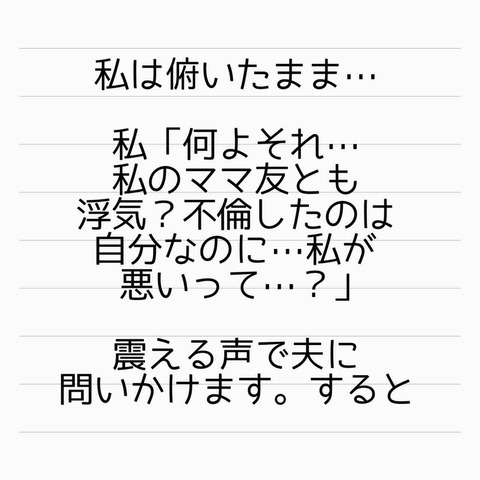 私は俯いたまま…
私「何よそれ…
私のママ友とも
浮気？不倫したのは
自分なのに…私が
悪いって…？」
震える声で夫に
問いかけます。すると